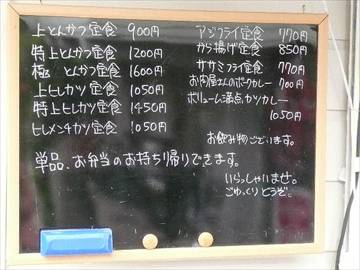 上とんかつ定食 900円
特上とんかつ定食 1200円
極 とんかつ定食 1600円
上ヒレカツ定食 1050円
特上ヒレカツ定食 1450円
ヒレメンチカツ定食 1050円
アジフライ定食 770円
から揚げ定食 850円
ササミフライ定食 770円
お肉屋さんのポークカレー 700円
ボリューム満点カツカレー
1050円
お飲み物ございます。
単品、お弁当のお持ち帰りできます。
いらっしゃいませ。
ごゆっくりどうぞ。